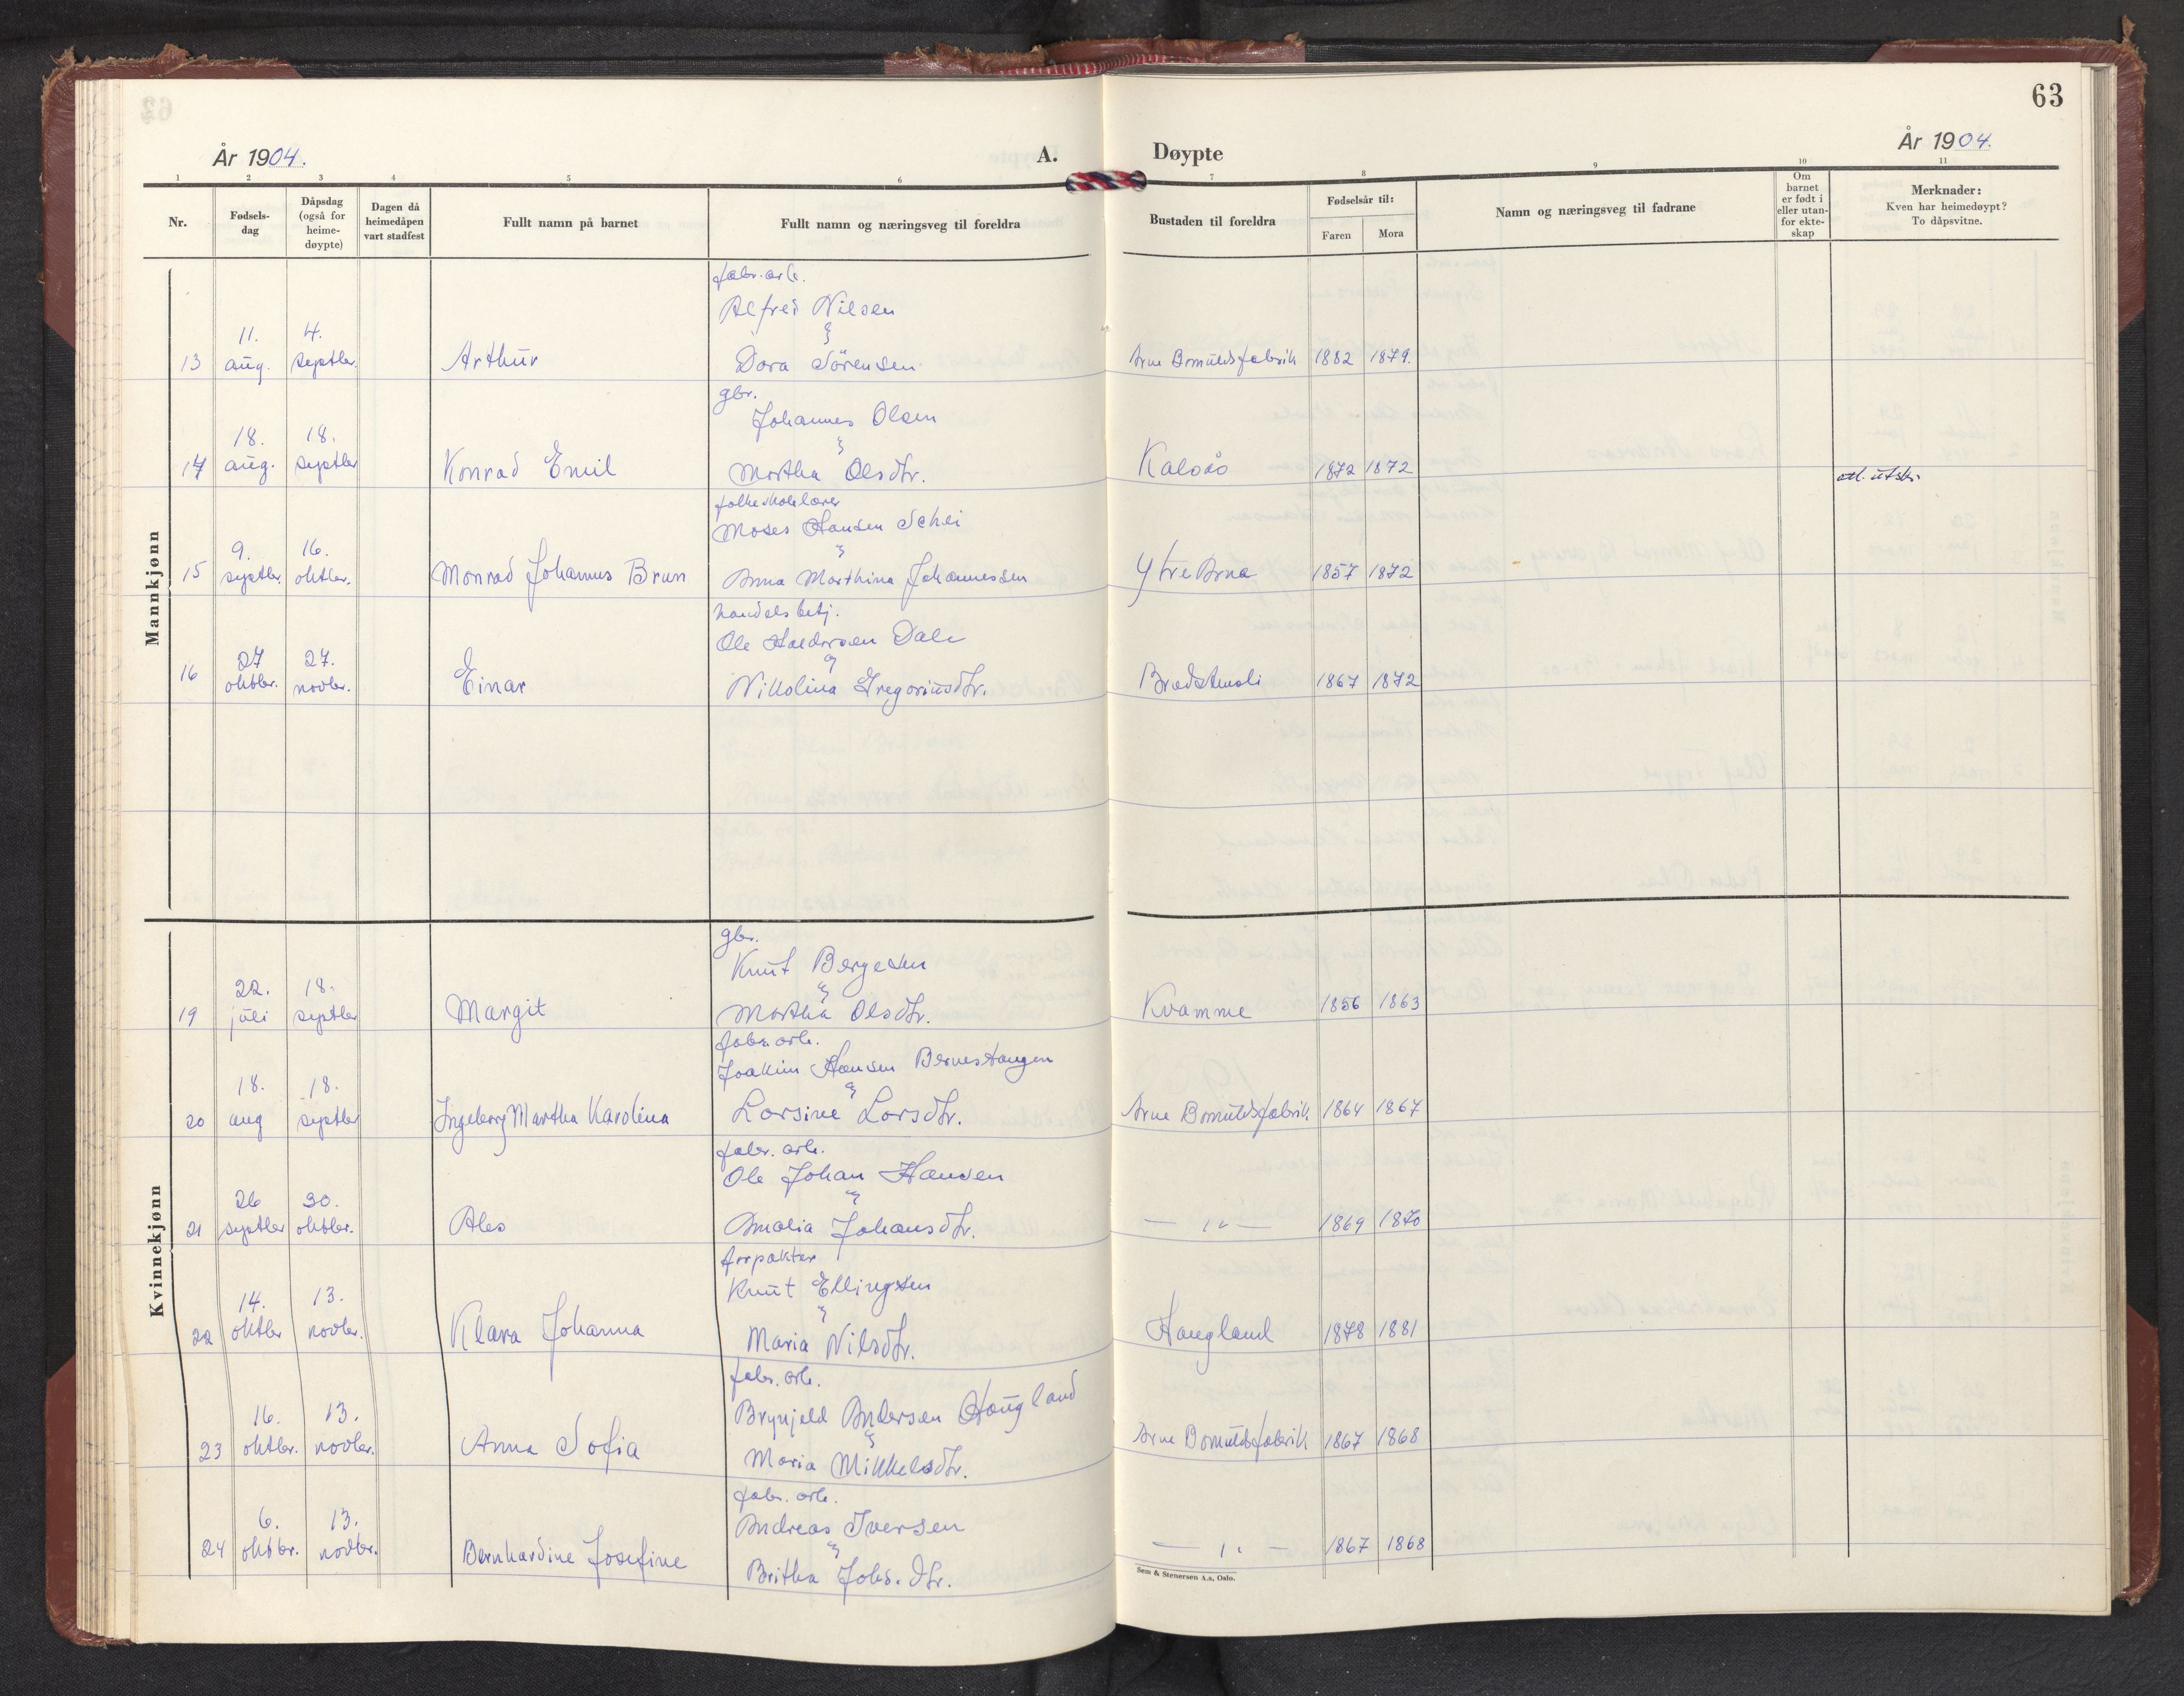 63
År 1904.
A.
Døypte
År 1904.
1 2 3 4 5 6 7 8 9 10 11
Nr.
Fødsels-
dag
Dåpsdag
(også for
heime-
døypte)
Dagen då
heimedåpen
vart stadfest
Fullt namn på barnet
Fullt namn og næringsveg til foreldra
Bustaden til foreldra
Fødselsår til:
Faren
Mora
Namn og næringsveg til fadrane
Om
barnet
er født i
eller utan-
for ekte-
skap
Merknader:
Kven har heimedøypt?
To dåpsvitne.
Mannkjønn
fabr. arb.
Alfred Nilsen
11. 4.
&
13 aug. septbr. Arthur Dora Sörensen Arne Bomuldsfabrik 1882 1879.
gbr.
Johannes Olsen
18. 18.
&
14 aug. septbr Konrad Emil Martha Olsdtr. Kalsås 1872 1872
att. utskr.
folkeskolelærer
Moses Hansen Schei
9. 16.
&
15 septbr. oktbr. Monrad Johannus Brun Anna Marthina Johannessen Ytre Arna 1857 1872
handelsbetj.
Ole Haldorsen Dale
27 27.
&
16 oktbr. novbr. Einar Nikolina Gregoriusdtr. Bradstmoli 1867 1872
Kvinnekjønn
gbr.
Knut Bergesen
22. 18.
&
19 juli septbr Margit Martha Olsdtr. Kvamme 1856 1863
fabr. arb.
Joakim Hansen Bernestangen
18. 18.
&
20 aug septbr Ingeborg Martha Karolina Larsine Larsdtr. Arne Bomuldsfabrik 1864 1867
fabr. arb.
Ole Johan Hansen
26 30.
&
21 septbr oktbr. Ales Amalia Johansdtr. — " — 1869 1870
forpakter
Knut Ellingsen
14. 13.
&
22 oktbr novbr. Klara Johanna Maria Nilsdtr. Haugland 1878 1881
fabr. arb.
Brynjeld Andersen Haugland
16. 13.
&
23 oktbr. novbr. Anna Sofia Maria Mikkelsdtr. Arne Bomuldsfabrik 1867 1868
fabr. arb.
Andreas Iversen
6. 13.
&
24 oktbr. novbr. Bernhardine Josefine Britha Johs. dtr. — " — 1867 1868
Sem & Stenersen A.s, Oslo.